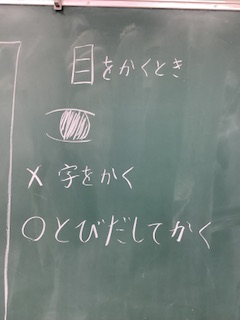 目をかくとき
× 字をかく
○とびだしてかく